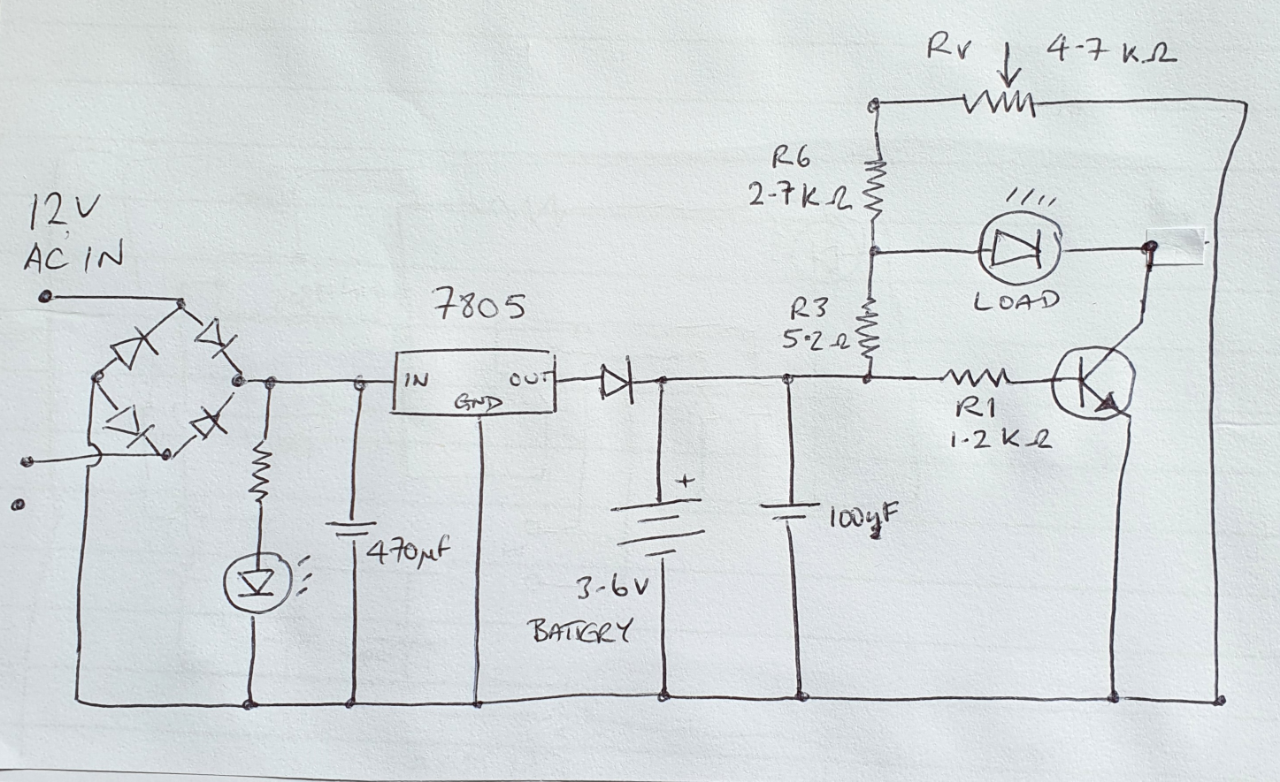 Rv 4.7 KΩ
R6
2.7 KΩ
12V
AC IN
7805
IN OUT
GND
LOAD
R3
5.2 Ω
R1
1.2 KΩ
+
470μF
100μF
3.6V
BATTERY